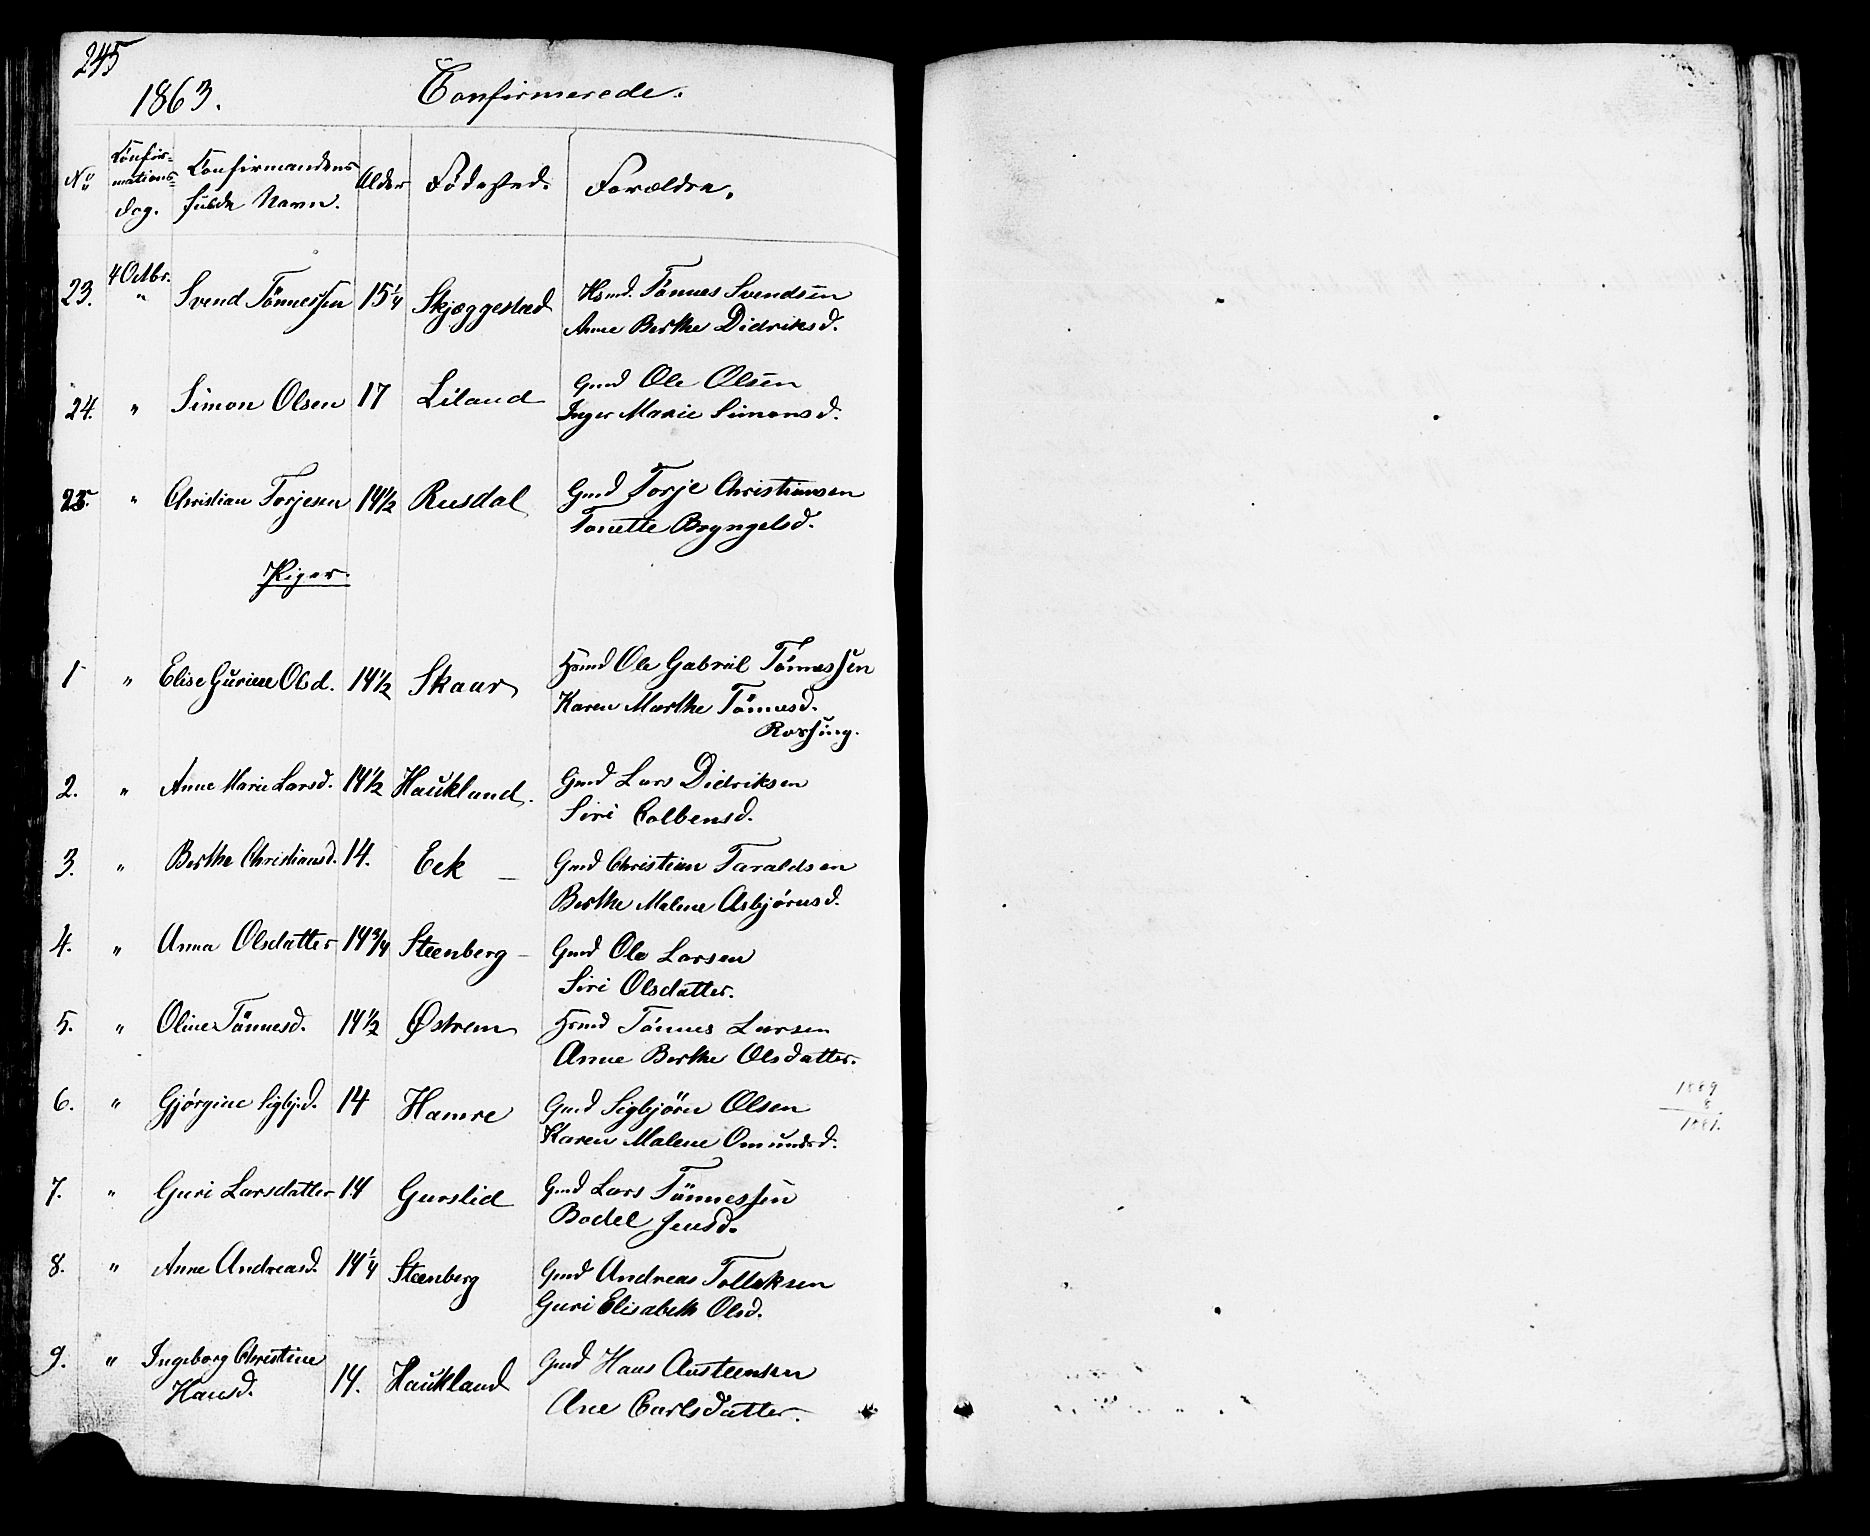 245
1863. Confirmerede.
No Confir-mations-dag. Confirmandens fulde Navn. Alder Fødested. Forældre.
23. 4 Octbr. " Svend Tönnessen 15 1/4 Skjæggestad Hsmd. Tönnes Svendsen
Anne Berthe Didriksd.
24. " Simon Olsen 17 Liland Gmd Ole Olsen
Inger Marie Simonsd.
25. " Christian Torjesen 14 1/2 Rusdal Gmd Torje Christiansen
Tonette Bryngelsd.
Piger.
1 " Elise Gurine Olsd. 14 1/2 Skaar Hsmd Ole Gabriel Tönnessen
Karen Marthe Tönnesd.
2. " Anne Marie Larsd. 14 1/2 Haukland. Gmd Lars Didriksen
Siri Colbensd.
3. " Berthe Christiansd. 14. Eek Gmd Christian Taraldsen
Berthe Malene Asbjørnsd.
4. " Anna Olsdatter 14 3/4 Steenberg Gmd Ole Larsen
Siri Olsdatter.
5. " Oline Tönnesd. 14 1/2 Østrem Hsmd Tönnes Larsen
Anne Berthe Olsdatter.
6. " Gjørgine Sigbjd. 14 Hamre Gmd Sigbjörn Olsen
Karen Malene Omundsd.
7. " Guri Larsdatter 14 Gurslid Gmd Lars Tönnessen
Bodel Jensd.
8. " Anne Andreasd. 14 1/4 Steenberg Gmd Andreas Tolleksen
Guri Elisabeth Olsd.
9. " Ingeborg Christine Hansd. 14. Haukland Gmd Hans Austeensen
Ane Carlsdatter.
1889
8
1881.